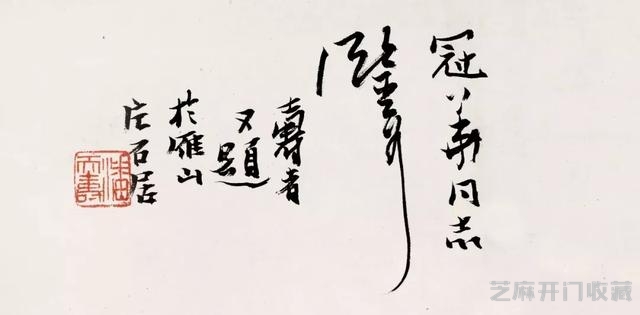 冠華同志
壽者
又題
於雁山
石居
潘天壽
芝麻开门收藏